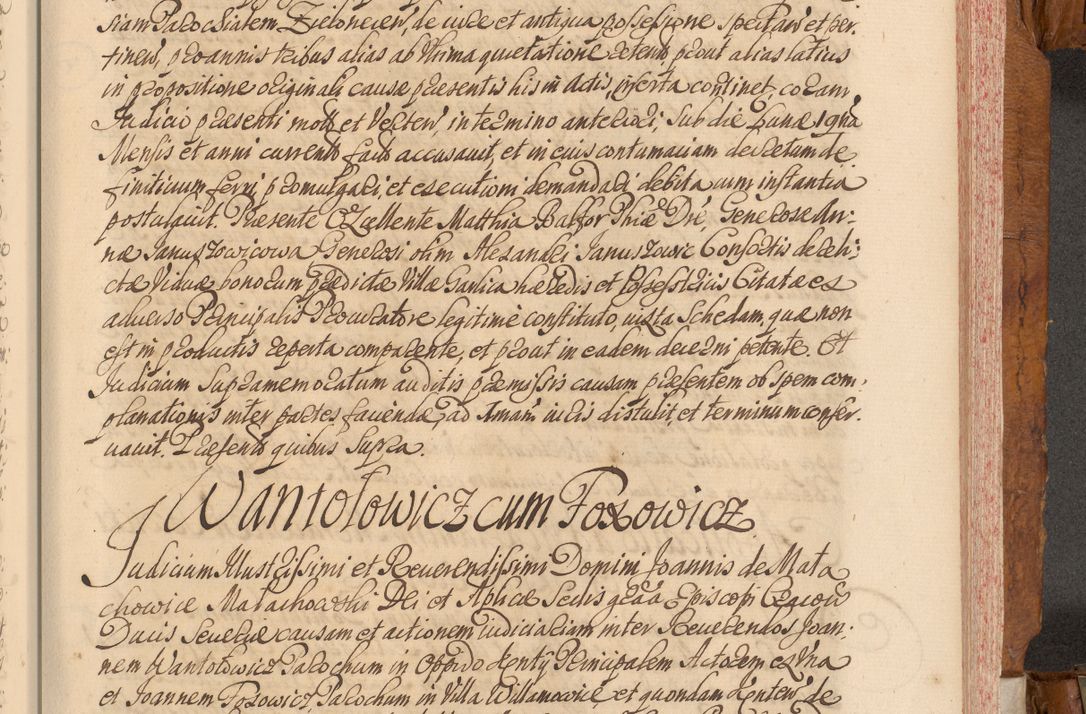 siam Paroc͠hialem Zieloncien̄, de iure et antiqua possessione spectan̄ et per:
tinen̄, pro annis tribus alias ab Vltima quietatione retent. prout alias latius
in propositione originali causæ præsentis his in Actis inserta continet. coram
Judicio præsenti mott. et Verten̄, in termino anteriori, Sub die
Mensis et anni current. facto accusauit, et in eius contumaciam decretum de,
finitiuum ferri, promulgari, et executioni demandari debita cum instantia
postulauit. Præsente Excellente Matthia Balfor Phiæ Dre, Generosæ An:
næ Januszowicowa Generosi olim Alexandri Januszowic Consortis derelic:
ctæ Viduæ bonorum prædictæ Villæ Garlica hæredis et Possessricis Citatæ ex
aduerso Principalis Procuratore legitime constituto, iuxta Schedam, quæ non
est in productis reperta comparente, et prout in eadem decerni petente. Et
Judicium Supramemoratum auditis præmissis causam præsentem ob spem com,
planationis inter partes faciendæ, ad Imam iuris distulit, et terminum conser,
uauit. Præsent. quibus Supra.
Wantołowicz cum Foxowicz
Judicium Illustrissimi et Reuerendissimi Domini Joannis de Mała
chowice Małachowski Dei et Aplicæ Sedis graa Episcopi Cracoui
Ducis Seueriæ causam et actionem iudiciariam inter Reuerendos Joan:
nem Wantołowicz Parochum in Oppido Kenty Principalem Actorem ex Vna
et Joannem Foxowicz, Parochum in Villa Willamowice, et quondam Kenten̄ de